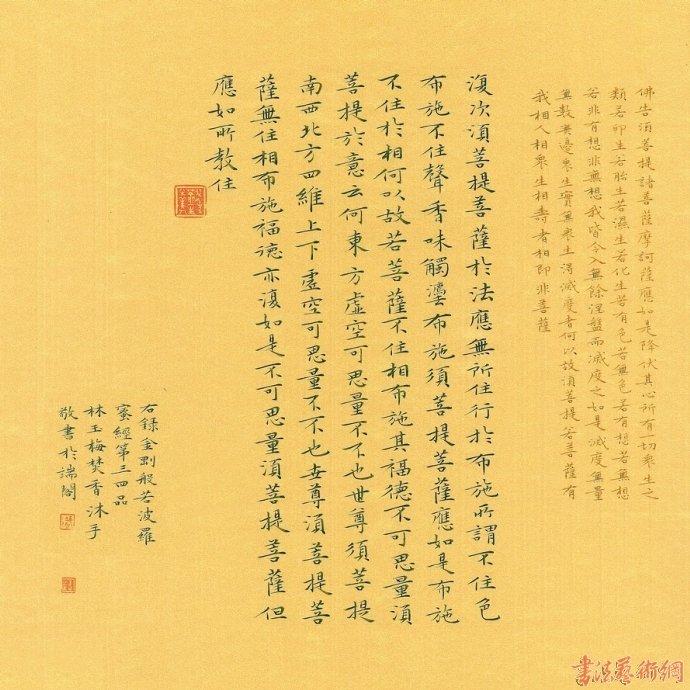 佛告須菩提諸菩薩摩訶薩應如是降伏其心所有一切眾生之
類若卵生若胎生若濕生若化生若有色若無色若有想若無想
若非有想非無想我皆令入無餘涅盤而滅度之如是滅度無量
無數無邊眾生實無眾生得滅度者何以故須菩提若菩薩有
我相人相眾生相壽者相即非菩薩
復次須菩提菩薩於法應無所住行於布施所謂不住色
布施不住聲香味觸灋布施須菩提菩薩應如是布施
不住於相何以故若菩薩不住相布施其福德不可思量須
菩提於意云何東方虛空可思量不不也世尊須菩提
南西北方四維上下虛空可思量不不也世尊須菩提菩
薩無住相布施福德亦復如是不可思量須菩提菩薩但
應如所教住
右錄金剛般若波羅
蜜經第三四品
林玉梅焚香沐手
敬書於端閣
書法藝術網